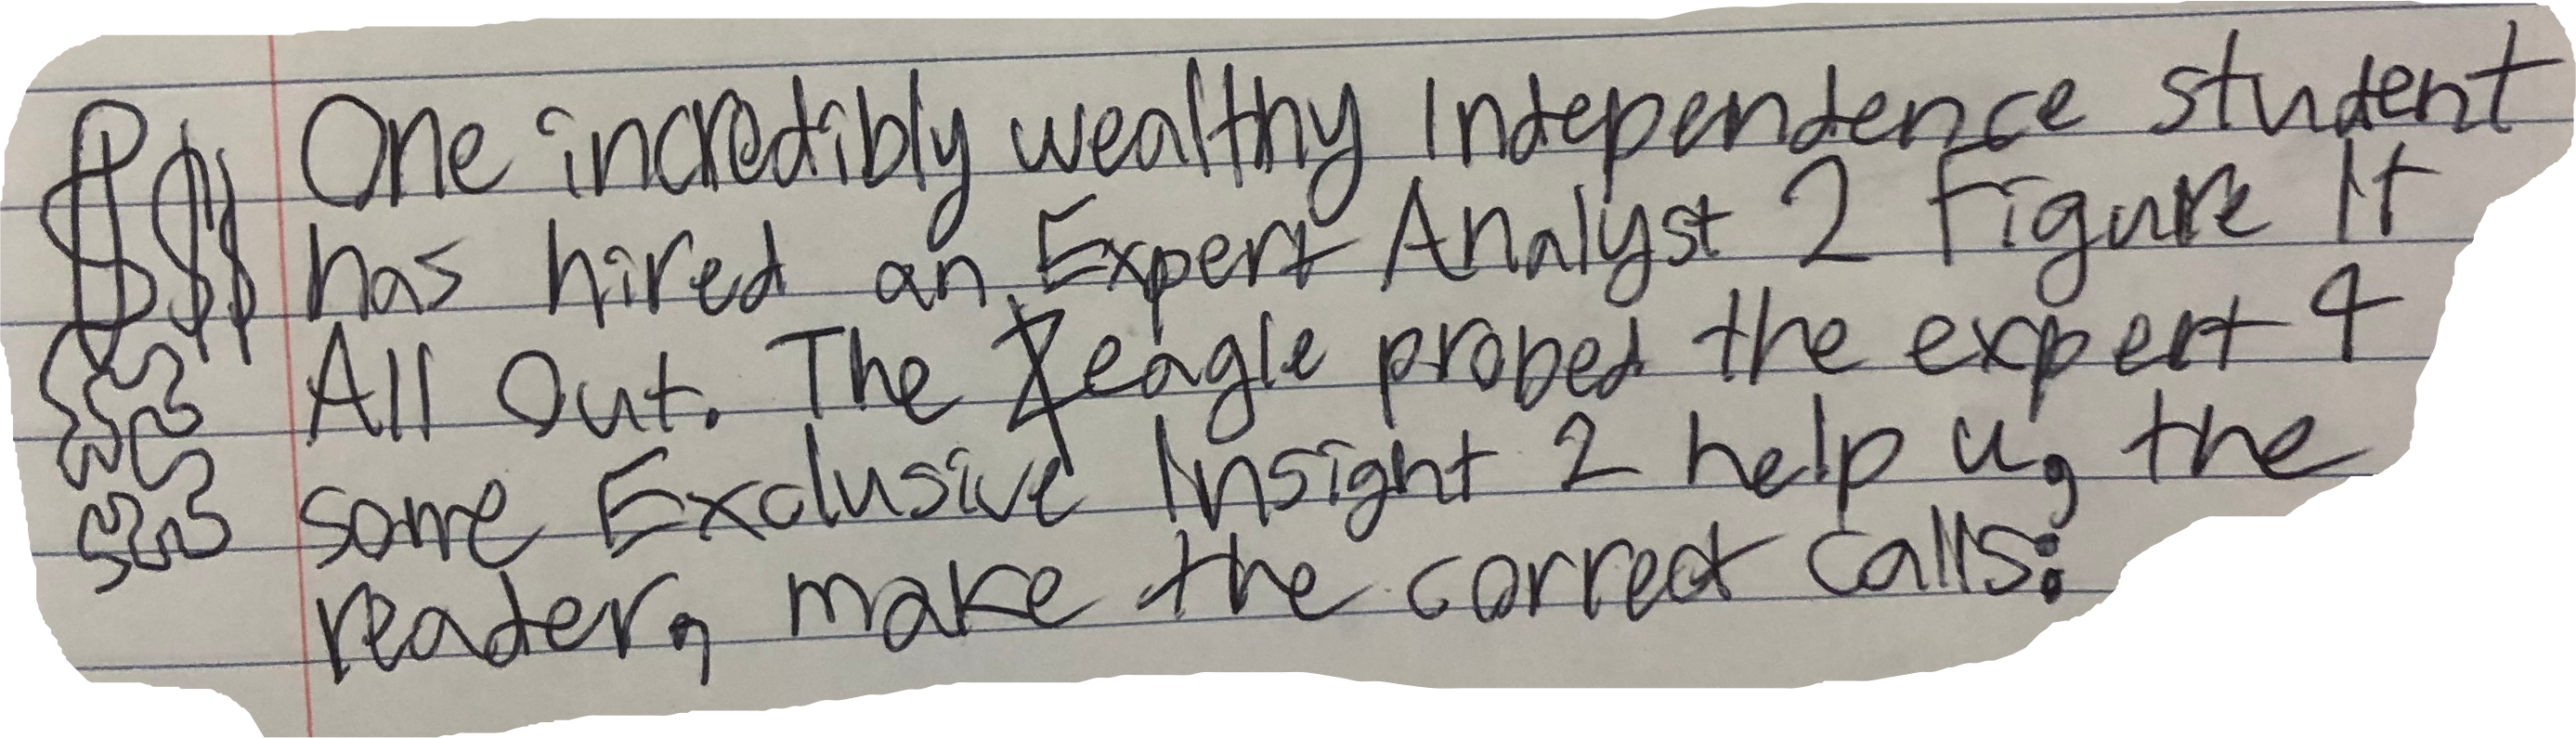 $$$ One incredibly wealthy Independence student
has hired an Expert Analyst 2 Figure It
All Out. The eagle probed the expert 4
some Exclusive Insight 2 help u, the
reader, make the correct calls: